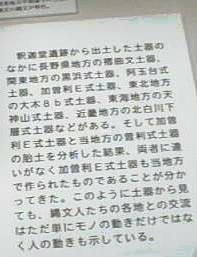 釈迦堂遺跡から出土した土器の
なかに長野県地方の櫛曲文土器、
関東地方の黒浜式土器、阿玉台式
土器、加曽利E式土器、東北地方
の大木8b式土器、東海地方の天
神山式土器、近畿地方の北白川下
層式土器などがある。そして加曽
利E式土器と当地方の曽利式土器
の胎土を分析した結果、両者に違
いがなく加曽利E式土器も当地方
で作られたものであることが分か
ってきた。このように土器から見
ても、縄文人たちの各地との交流
はただ単にモノの動きだけではな
く人の動きも示している。